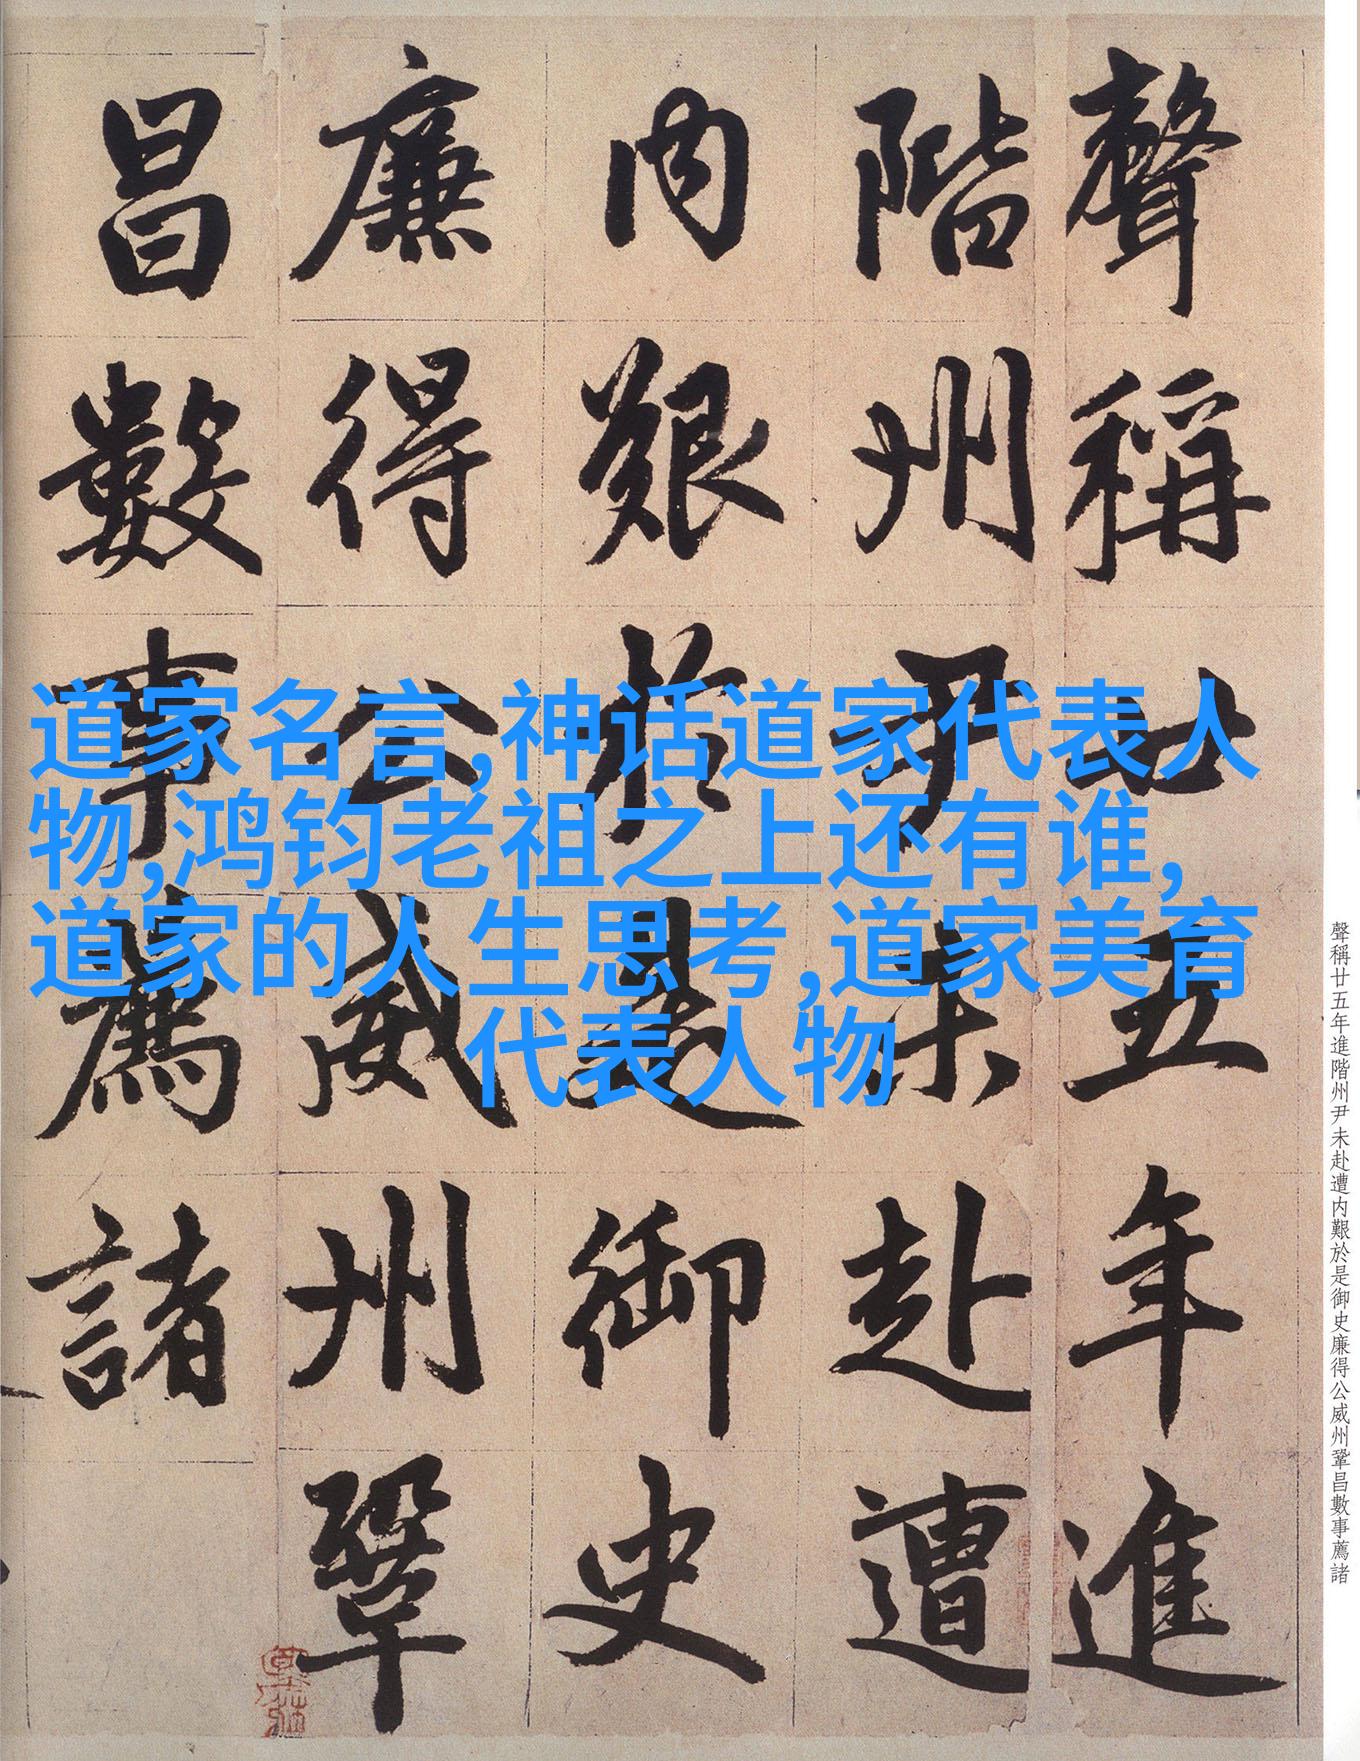 聲稱廿五年進
階州尹未赴遭
内艱於是御史
廉得公威州鞏
昌數事薦諸
道家名言,神话道家代表人
物,鸿钧老祖之上还有谁,
道家的人生思考,道家美育
代表人物
聲稱廿五年進階州尹未赴遭内艱於是御史廉得公威州鞏昌數事薦諸